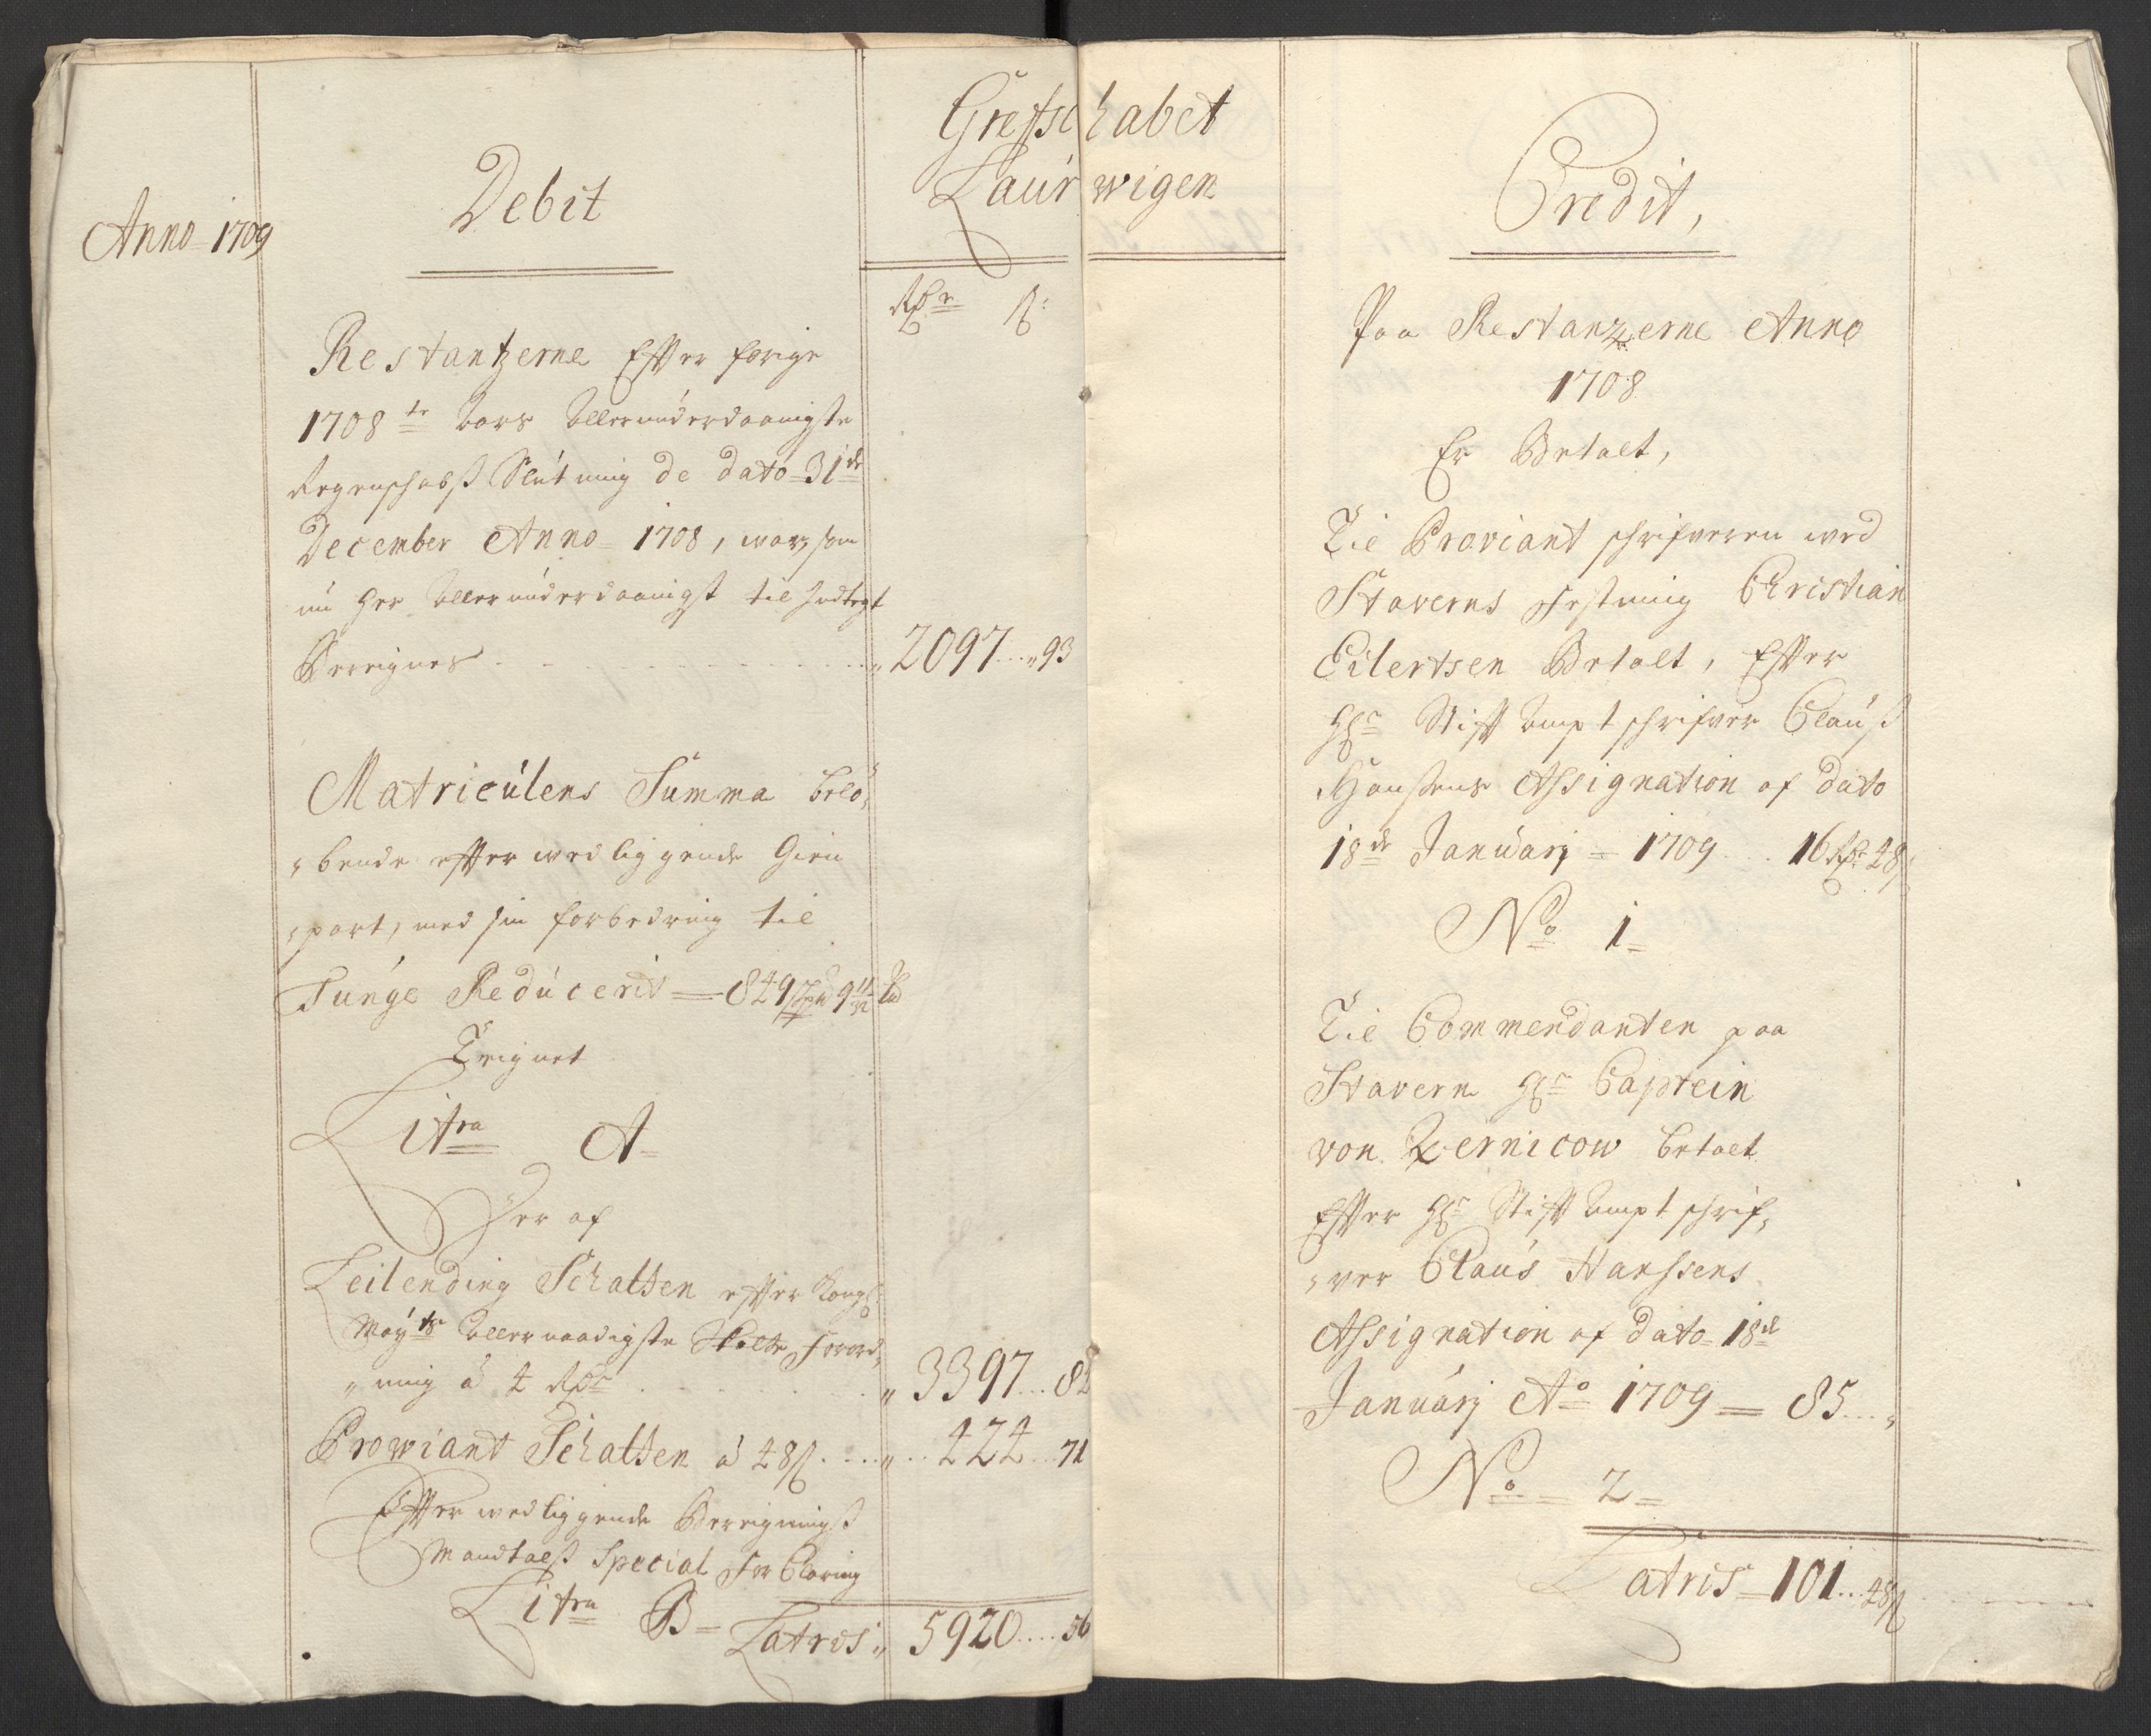 Grefschabet
Laurwigen
Anno 1709
Debit
Rdr ß:
Restantzerne Effter forige
1708te Aars Allerunderdaanigste
Regenschabs Slutning de dato 31de
December Anno 1708, war, som
nu her Allerunderdaanigst til Indtegt
Bereignes 2097 93
Matriculens Summa belø¬
bende effter wedliggende Gien¬
part, med sin forbedring til
Tunge Reducerit = 849
Beregnet
Litra A
Her af
Leilending Schatten effter Kongl:
Mayts Allernaadigste Skatte Forord¬
ning à 4 Rdr 3397 82
Prowiant Schatten à 48 ß 424 71
Effter wedliggende Bereignings
Mandtals Special For Claring
Litra B Latris 5920 56
Credit,
Paa Restanzerne Anno
1708
Er Betalt,
Til Proviant schrifveren wed
Staverns Festning Christian
Eilertsen Betalt, Effter
Hr Stifft Ampt schrifver Clauß
Hanßens Assignation af dato
18de Januarj 1709 16 Rdr 48 ß
No 1
Til Commendanten paa
Stavern Hr Captein
von Zernicow betalt
Effter Hr Stifft Ampt schrif¬
ver Claus Hanssens
Assignation af dato 18de
Januarj Ao 1709 = 85
No 2
Latris 101 48 ß